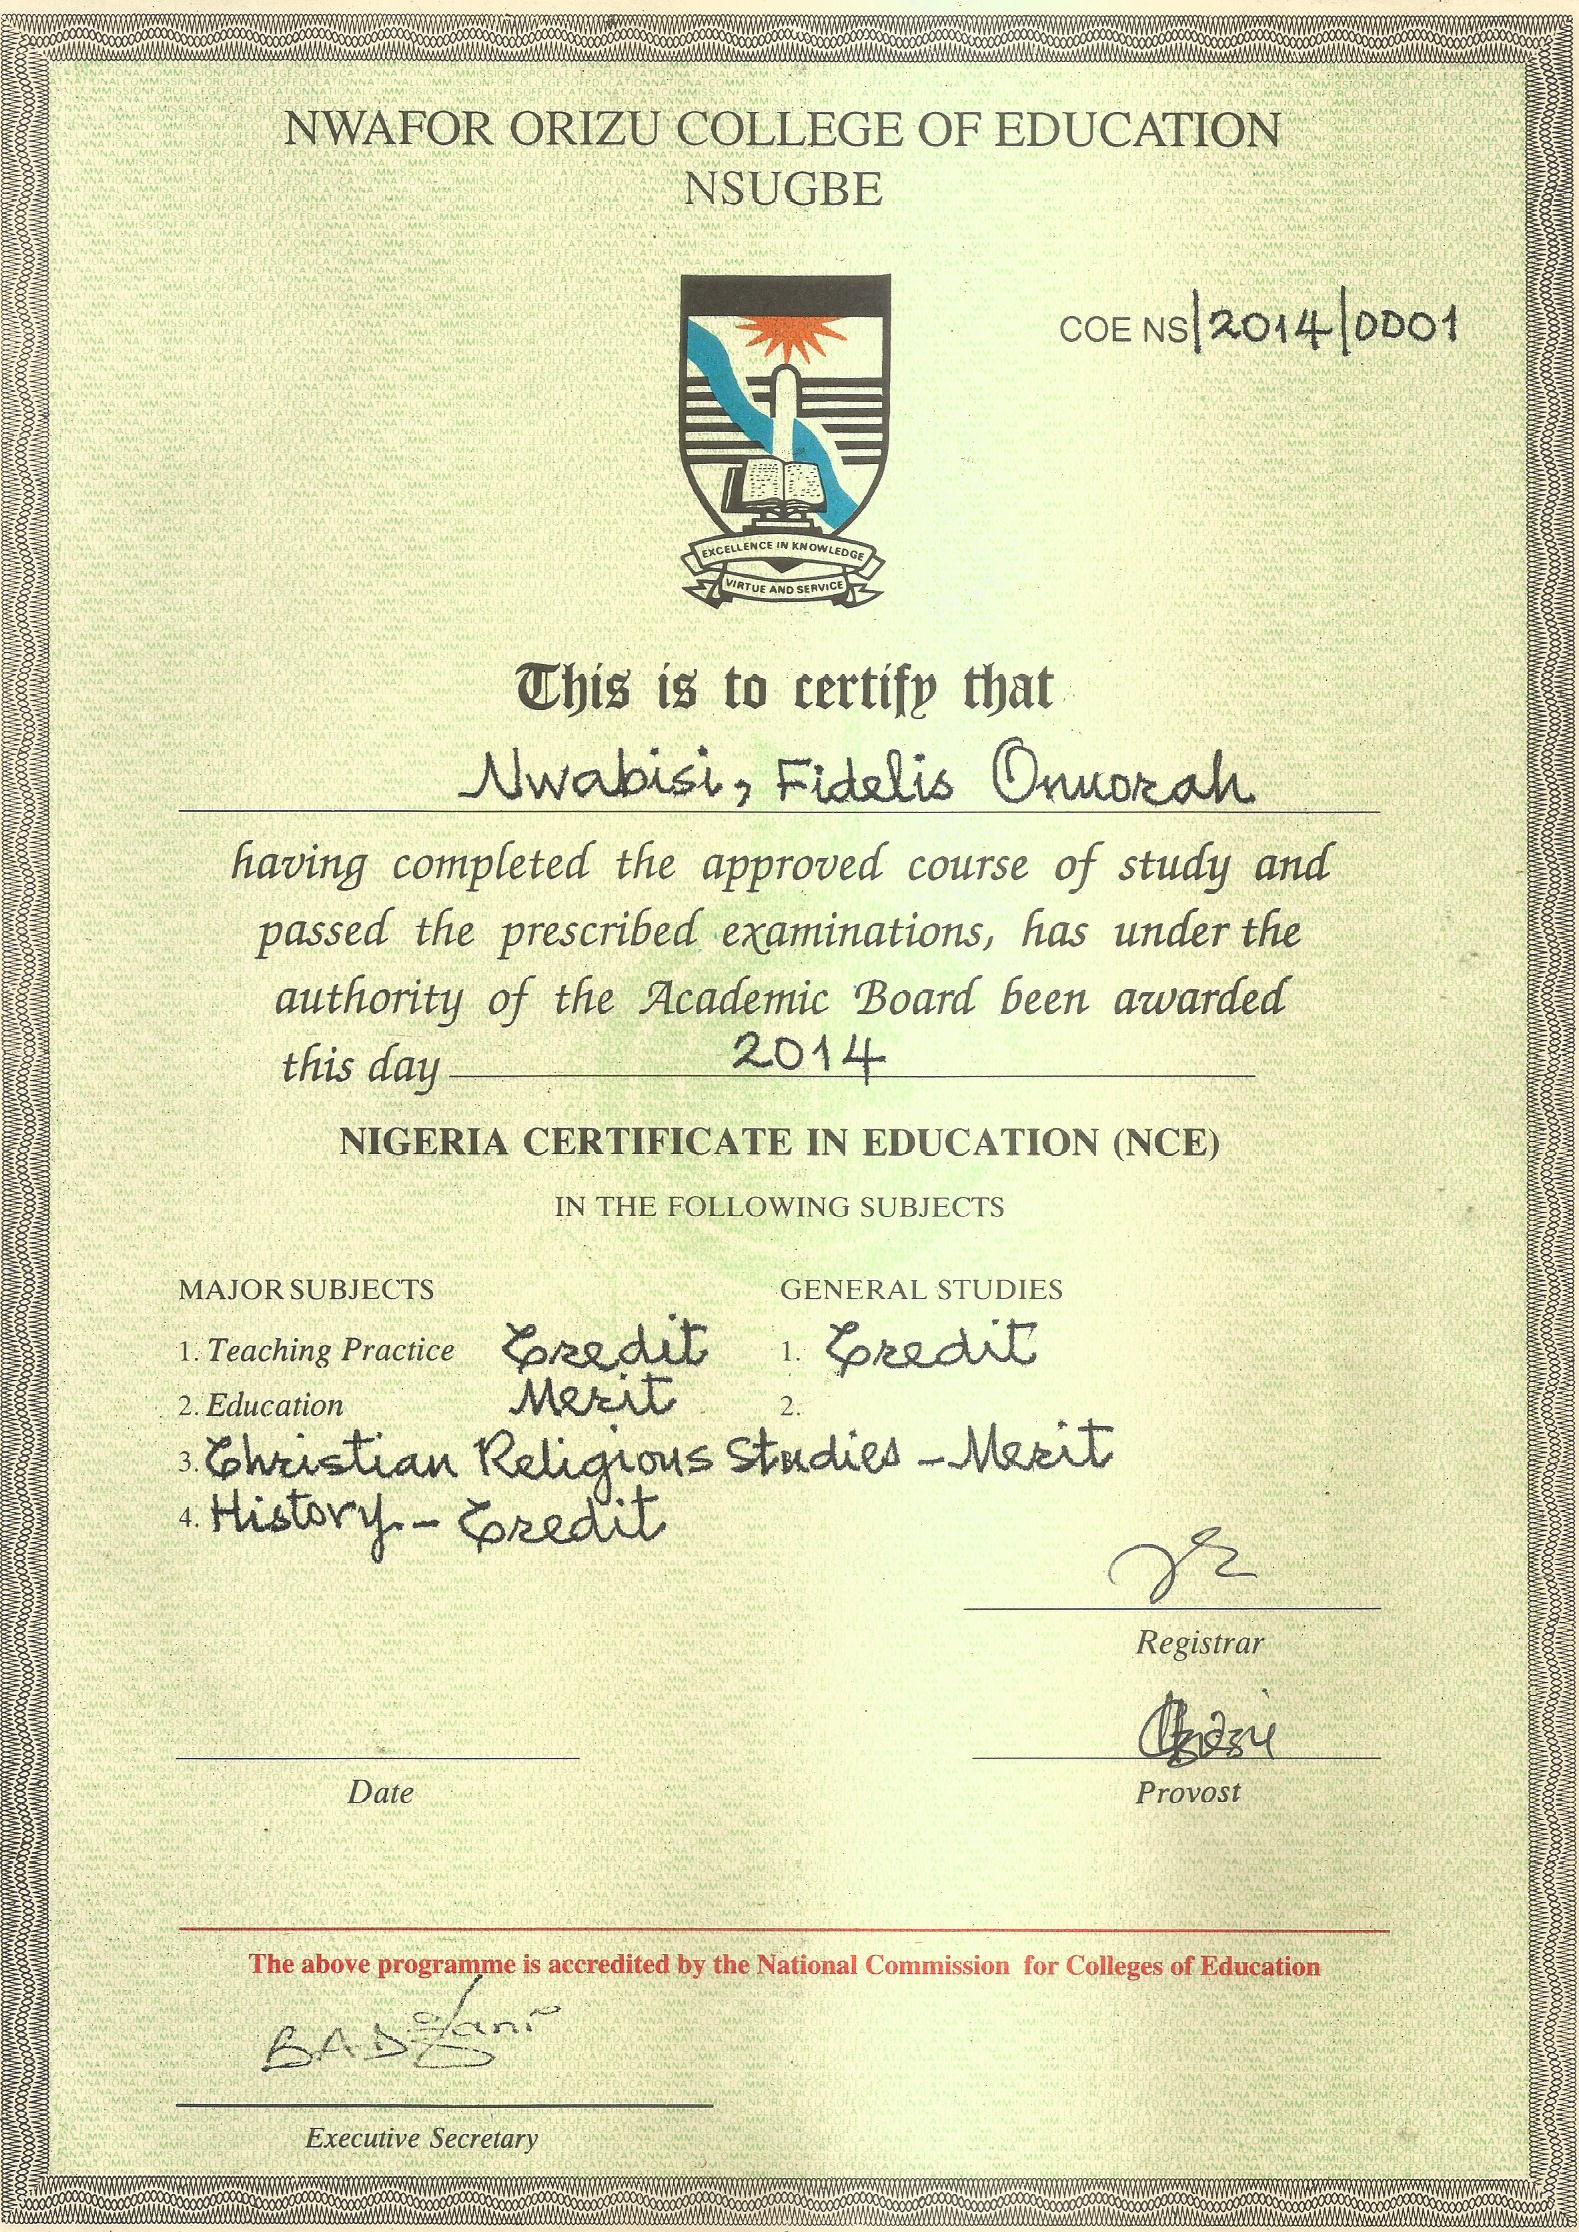 NWAFOR ORIZU COLLEGE OF EDUCATION
NSUGBE
COE NS/2014/0001
EXCELLENCE IN KNOWLEDGE
VIRTUE AND SERVICE
This is to certify that
Nwabisi, Fidelis Onuorah
having completed the approved course of study and
passed the prescribed examinations, has under the
authority of the Academic Board been awarded
this day 2014
NIGERIA CERTIFICATE IN EDUCATION (NCE)
IN THE FOLLOWING SUBJECTS
MAJOR SUBJECTS GENERAL STUDIES
1. Teaching Practice Credit 1. Credit
2. Education Merit 2.
3. Christian Religious Studies - Merit
4. History - Credit
Registrar
Date Provost
The above programme is accredited by the National Commission for Colleges of Education
Executive Secretary